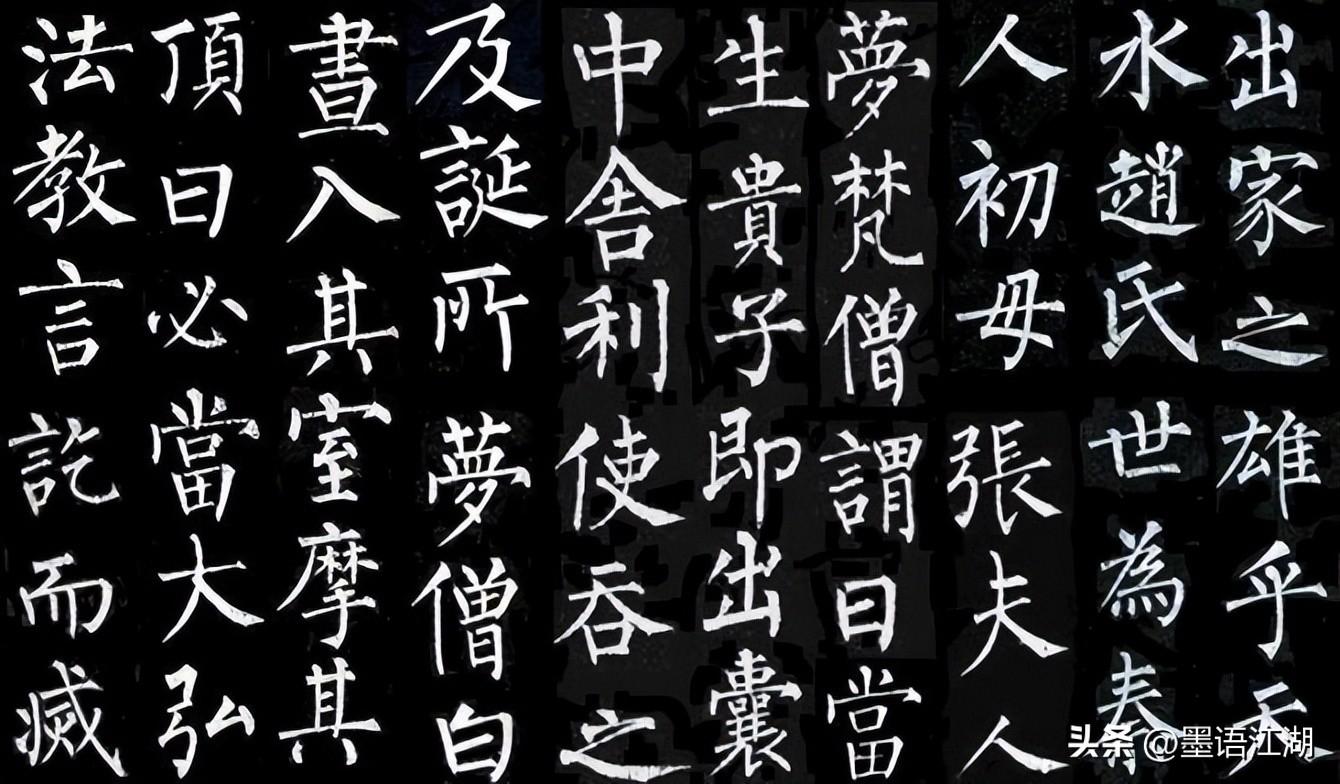 出家之雄乎天
水趙氏世為秦
人初母張夫人
夢梵僧謂曰當
生貴子即出囊
中舍利使吞之
及誕所夢僧白
晝入其室摩其
頂曰必當大弘
法教言訖而滅
头条 @墨语江湖